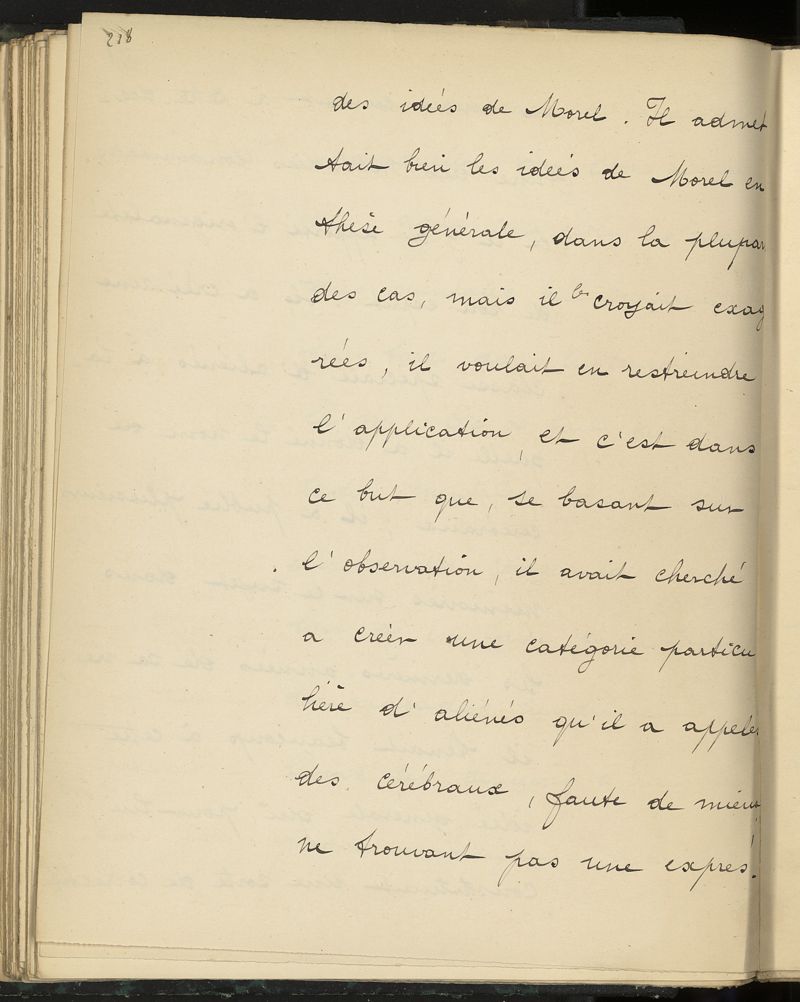 218
des idées de Morel. Il admet
tait bien les idées de Morel en
thèse générale, dans la plupar
des cas, mais il les croyait exag
rées, il voulait en restreindre
l'application, et c'est dans
ce but que, se basant sur
l'observation, il avait cherché
a créer une catégorie particu
lière d'aliénés qu'il a appeler
des cérébraux, faute de mieux,
ne trouvant pas une expres.